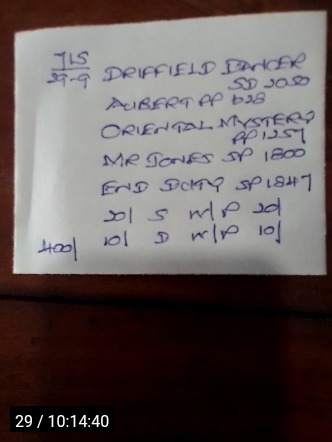 715
29-9 DRIFFIELD DANCER
SD 2030
AUBERT PP 628
ORIENTAL MYSTERY
PP 1257
MR JONES SP 1800
END DUTY SP 1847
20/ S W/P 20/
400/ 10/ D W/P 10/
29 / 10:14:40